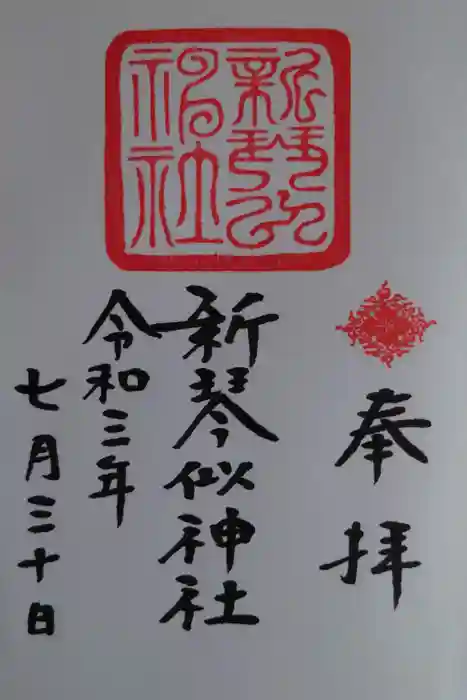 奉拝
新琴似神社
令和三年
七月三十日
新琴似神社